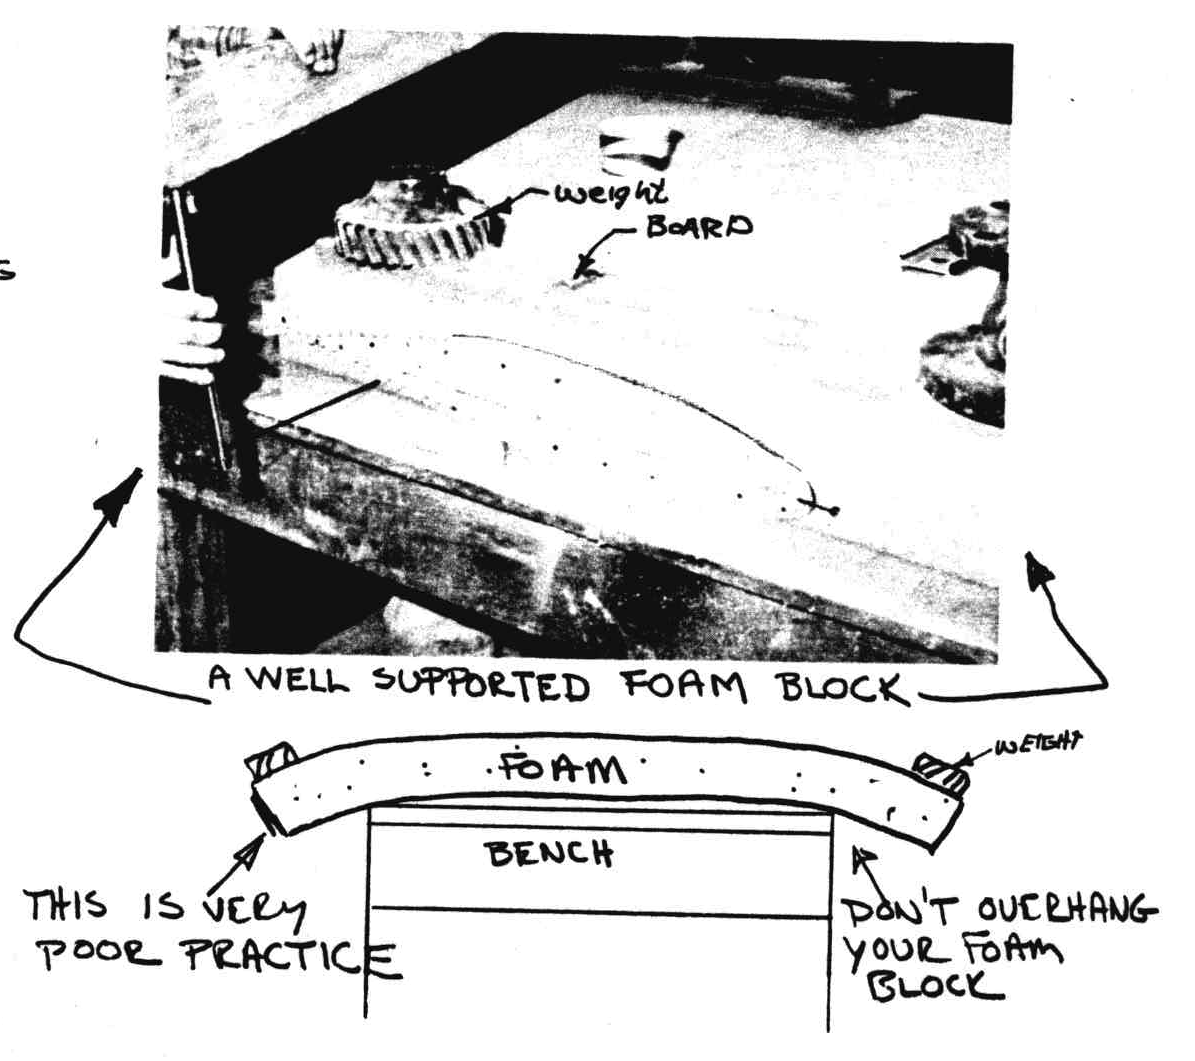 weight
BOARD
A WELL SUPPORTED FOAM BLOCK
WEIGHT
FOAM
BENCH
THIS IS VERY
POOR PRACTICE
DON'T OVERHANG
YOUR FOAM
BLOCK